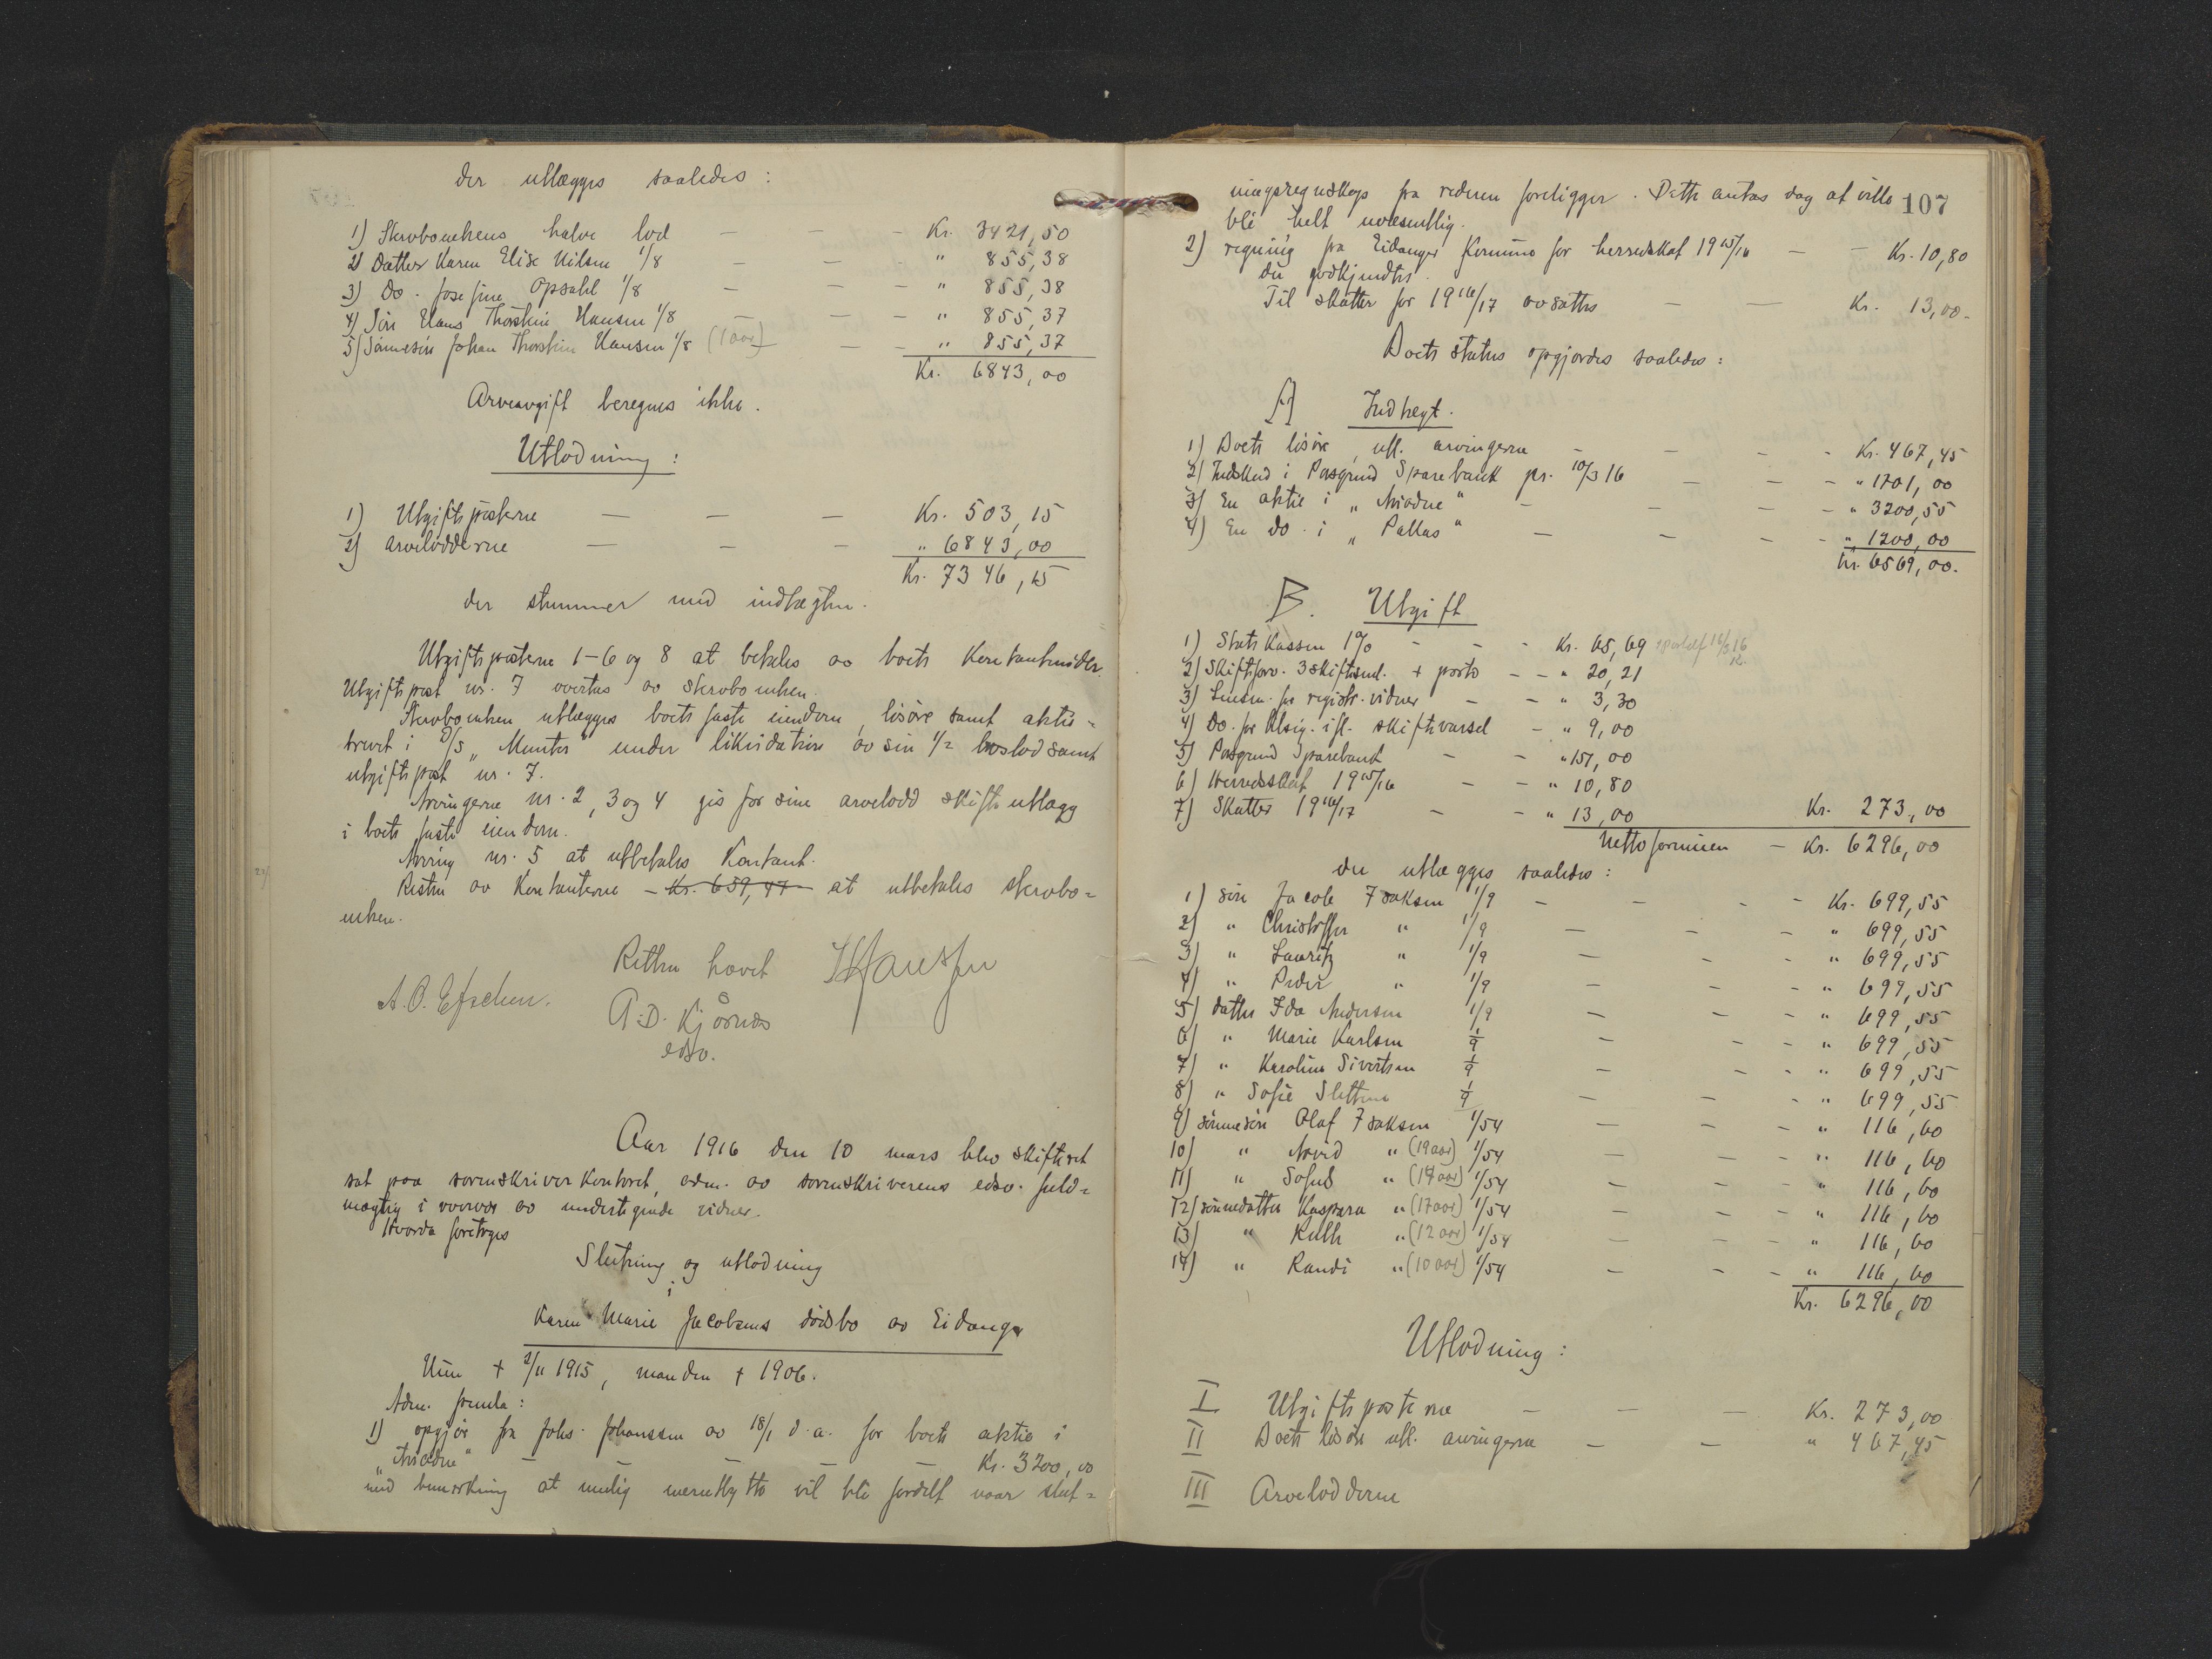 der utlægges saaledes:
1) Skrabo enkens halve lod — — — Kr. 3421,50
2) Datter Karen Elise Nilsen 1/8 — — — " 855,38
3) Do. Josefine Opsahl 1/8 — — — " 855,38
4) Sön Hans Thorstein Hansen 1/8 — — — " 855,37
5) Sönnesön Johan Thorstein Hansen 1/8 (1 aar) — — " 855,37
Kr. 6843,00
Arveavgift beregnes ikke.
Utlodning:
1) Utgiftsposterne — — — Kr. 503,15
2) arveloddene — — — " 6843,00
Kr. 7346,15
der stemmer med indtægten.
Utgiftsposterne 1-6 og 8 at betales av boets Kontantmidler.
Utgiftspost nr. 7 overtas av skrabo enken.
Skrabo enken utlægges boets faste eiendom, lösöre samt aktie=
brevet i D/S "Munter" under likvidation av sin 1/2 boslod samt
utgiftspost nr. 7.
Arvingerne nr. 2, 3 og 4 gis for sine arvelodd skifteutlægg
i boets faste eiendom.
Arving nr. 5 at utbetales Kontant.
Resten av Kontanterne — Kr. 659,47 — at utbetales skrabo=
enken.
Retten hævet
A. O. Efschen.
A. D. Kjörnæs
edsv.
Aar 1916 den 10 mars blev skifteret
sat paa sorenskriver Kontoret, adm. av sorenskriverens edsv. fuld=
mægtig i nærvær av undertegnede vidner.
Hvorda foretoges
Slutning og utlodning
i
Karen Marie Jacobsens dödsbo av Eidanger
Hun + 2/11 1915, manden + 1906.
Adm. fremla:
1) opgjör fra Johs. Johanssen av 18/1 d.a. for boets aktie i
"Ariadne" — — — — — Kr. 3200,00
med bemerkning at mulig merutbytte vil bli fordelt naar slut=
107
ningsregnskap fra rederen foreligger. Dette antas dog at ville
bli helt uvesentlig.
2) regning fra Eidanger Komune for herredskat 1915/16 — — Kr. 10,80
der godkjendtes.
Til skatter for 1916/17 avsættes — — Kr. 13,00-
Boets status opgjordes saaledes:
A Indtægt.
1) Boets lösöre, utl. arvingerne — — — Kr. 467,45
2) Indskud i Porsgrund Sparebank pr. 10/3 16 — — — " 1701,00
3) En aktie i "Ariadne" — — — " 3200,55
4) En do. i "Pallas" — — — " 1200,00
Kr. 6569,00.
B. Utgift
1) Stats Kassen 1% — — Kr. 65,69
2) Skifteforv. 3 skiftesml. + porto — — " 20,21
3) Lensm. for registr. vidner — — " 3,30
4) Do. for utsig. ifl. skiftevarsel — " 9,00
5) Porsgrund Sparebank — — " 151,00
6) Herredsskat 1915/16 — — " 10,80
7) Skatter 1916/17 — — " 13,00 Kr. 273,00
Nettoformuen — Kr. 6296,00
der utlægges saaledes:
1) sön Jacob Isaksen 1/9 — — — Kr. 699,55
2) " Christoffer " 1/9 — — — " 699,55
3) " Lauritz " 1/9 — — — " 699,55
4) " Peder " 1/9 — — — " 699,55
5) datter Ida Andersen 1/9 — — — " 699,55
6) " Marie Karlsen 1/9 — — — " 699,55
7) " Karoline Sivertsen 1/9 — — — " 699,55
8) " Sofie Slettene 1/9 — — — " 699,55
9) sönnesön Olaf Isaksen 1/54 — — — " 116,60
10) " Arvid " (19 aar) 1/54 — — — " 116,60
11) " Sofus " (19 aar) 1/54 — — — " 116,60
12) sönnedatter Kaspara " (17 aar) 1/54 — — — " 116,60
13) " Ruth " (12 aar) 1/54 — — — " 116,60
14) " Randi " (10 aar) 1/54 — — — " 116,60
Kr. 6296,00
Utlodning:
I Utgiftsposterne — — — Kr. 273,00
II Boets lösöre utl. arvingerne — — " 467,45
III Arvelodderne